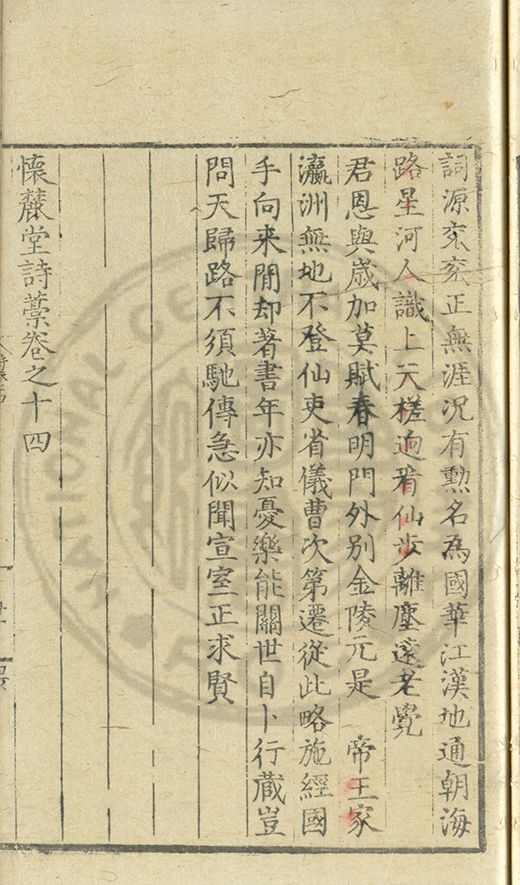 詞源衮衮正無涯况有勲名為國華江漢地通朝海
路星河人識上天槎逈看仙步離塵遠老覺
君恩與嵗加莫賦春明門外别金陵元是　帝王家
瀛洲無地不登仙吏省儀曹次第遷從此略施經國
手向來閒却著書年亦知憂樂能關世自卜行藏豈
問天歸路不須馳傳急似聞宣室正求賢
懷麓堂詩藁卷之十四